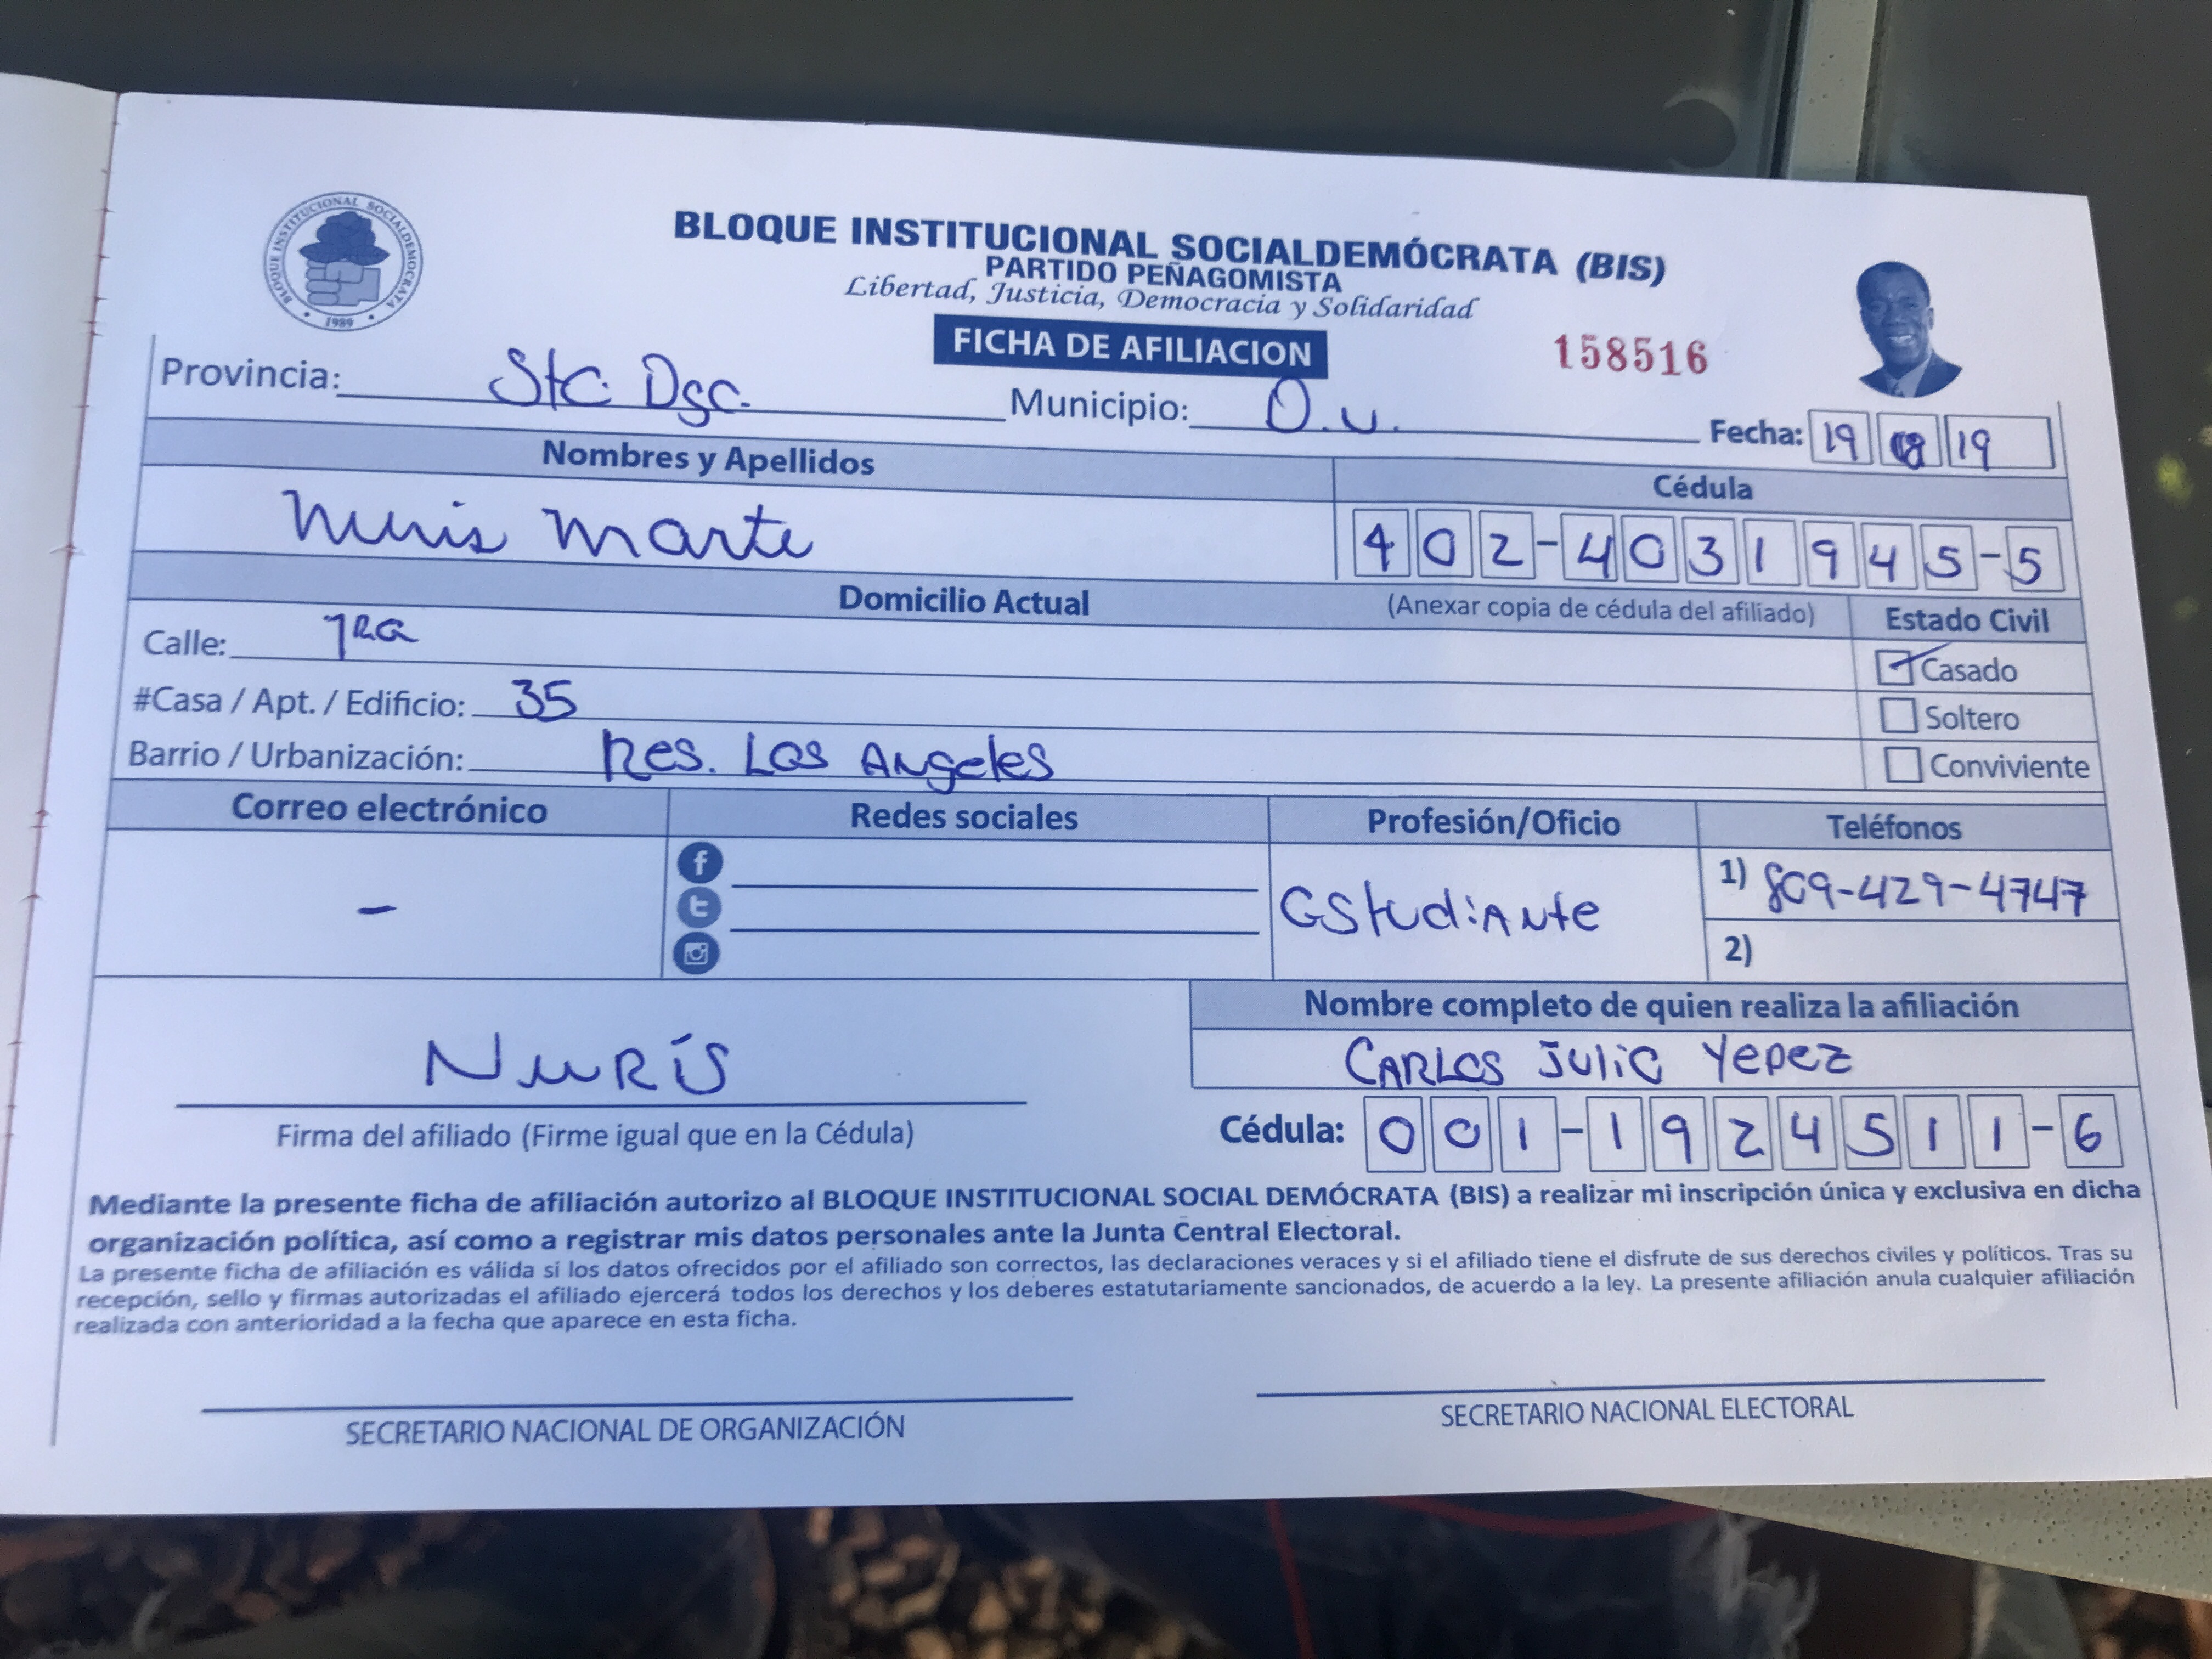 BLOQUE INSTITUCIONAL SOCIALDEMOCRATA
1989
BLOQUE INSTITUCIONAL SOCIALDEMÓCRATA (BIS)
PARTIDO PEÑAGOMISTA
Libertad, Justicia, Democracia y Solidaridad
FICHA DE AFILIACION
158516
Provincia: Sto Dgo.
Municipio: O.u.
Fecha: 19 19
Nombres y Apellidos
Cédula
Nuris Marte
402-4031945-5
Domicilio Actual
(Anexar copia de cédula del afiliado)
Estado Civil
Calle: 1Ra
Casado
#Casa / Apt. / Edificio: 35
Soltero
Barrio / Urbanización: Res. Los Angeles
Conviviente
Correo electrónico
Redes sociales
Profesión/Oficio
Teléfonos
-
f
t
Estudiante
1) 809-429-4747
2)
Nombre completo de quien realiza la afiliación
Nurís
Carlos Julio Yepez
Firma del afiliado (Firme igual que en la Cédula)
Cédula: 001-1924511-6
Mediante la presente ficha de afiliación autorizo al BLOQUE INSTITUCIONAL SOCIAL DEMÓCRATA (BIS) a realizar mi inscripción única y exclusiva en dicha
organización política, así como a registrar mis datos personales ante la Junta Central Electoral.
La presente ficha de afiliación es válida si los datos ofrecidos por el afiliado son correctos, las declaraciones veraces y si el afiliado tiene el disfrute de sus derechos civiles y políticos. Tras su
recepción, sello y firmas autorizadas el afiliado ejercerá todos los derechos y los deberes estatutariamente sancionados, de acuerdo a la ley. La presente afiliación anula cualquier afiliación
realizada con anterioridad a la fecha que aparece en esta ficha.
SECRETARIO NACIONAL DE ORGANIZACIÓN
SECRETARIO NACIONAL ELECTORAL